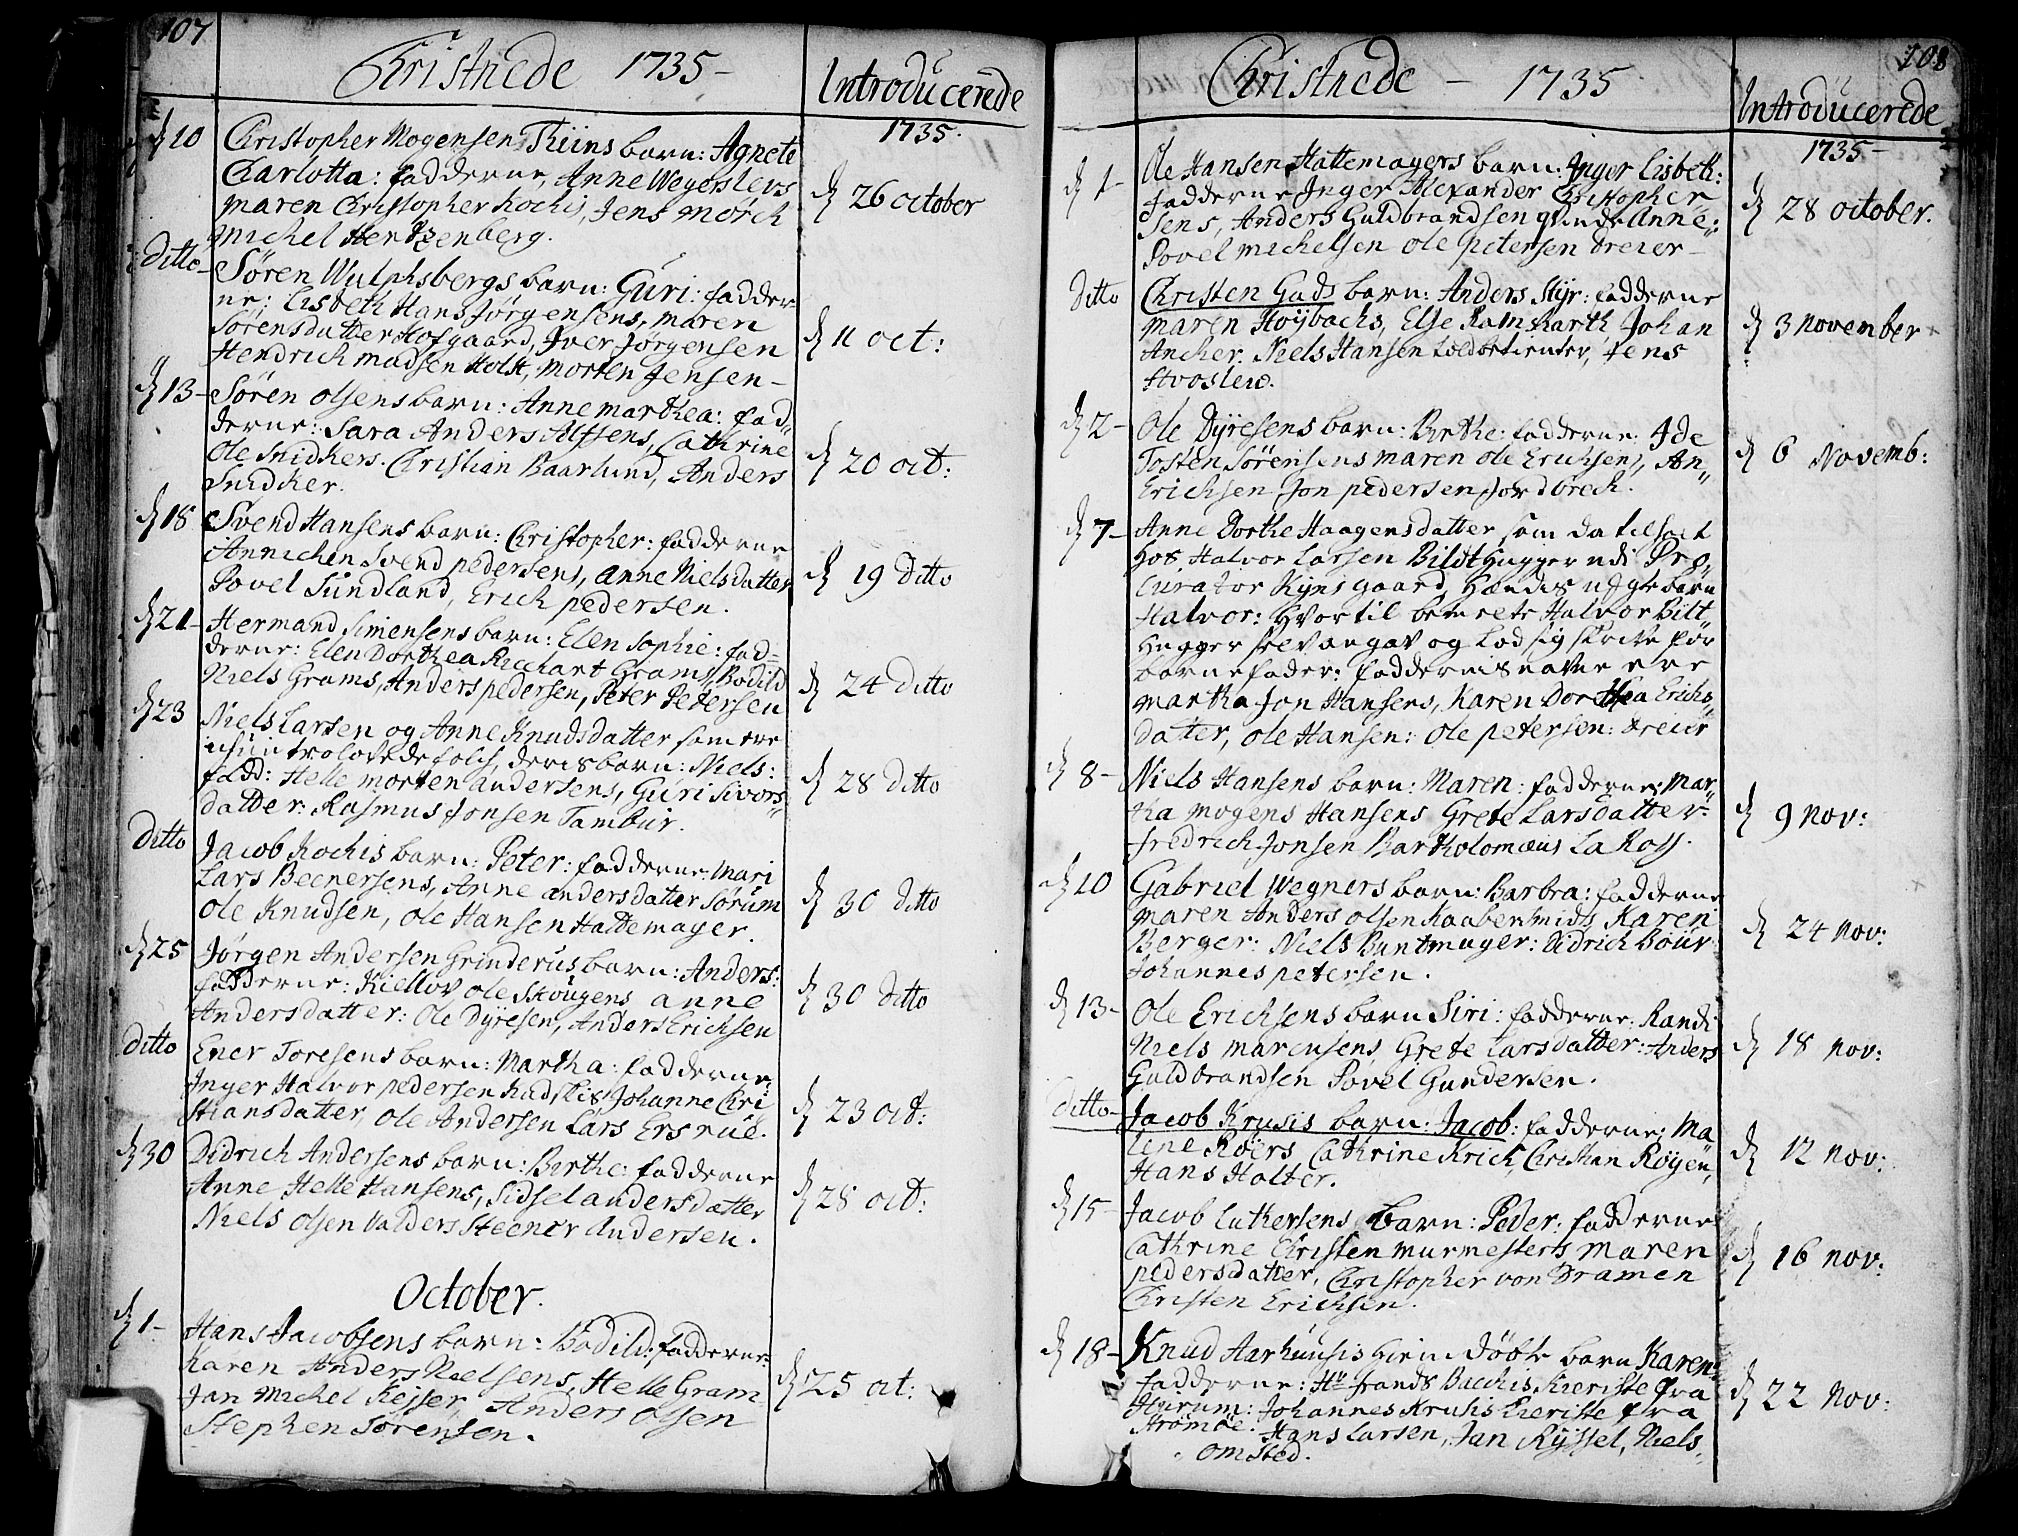 107
Christnede 1735-
Introducerede
1735.
10 Christopher Mogensen Thiins barn: Agnete
Charlotta: fadderne, Anne Wegerslevs
maren Christopher Kochs, Jens Mörch
Michel Hertzenberg.
26 october
ditto- Søren Wulphsbergs barn: Guri: fadder
ne: Lisbeth Hans Jørgensens, maren
Sörensdatter Hofgaard, Iver Jørgensen
Hendrich madsen Holst, Morten Jensen-
11 oct:
13- Søren olsens barn: Anne marthea: fad„
derne: Sara Anders Alfsens, Cathrine
Ole Snidkers. Christian Baarlund, Anders
Snidker.
20 oct:
18 Svend Hansens barn: Christopher: fadderne
Annichen Svend pedersens, anne Nielsdatter
Povel Sundland, Erich pedersen.
19 ditto
21- Hermand Simensens barn: Elen Sophie: fad-
derne: Elen Dorthea Richart Grams, Bodild
Niels Grams, Anders pedersen, Peter Pedersen
24 ditto
23 Niels Larsen og Anne Knudsdatter som ere
folch, deris barn: Niels:
fadd: Helle morten andersens, Guri Sivors„
datter: Rasmus Jonsen Tambur.
28 ditto
ditto Jacob Kochis barn: Peter: fadderne: Mari
Lars Beenersens, Anne andersdatter Sørum
Ole Knudsen, Ole Hansen Hattemager.
30 ditto
25 Jørgen Andersen Grinderus barn: Anders:
fadderne: Kiellov ole Skougens anne
Andersdatter: Ole Dyresen, Anders Erichsen
30 ditto
ditto Ener Toresens barn: Martha: fadderne
Inger Halvor pedersen Johanne Chri
stiansdatter, Ole Andersen Lars Ersrue.
23 oct:
30 Didrich Andersens barn: Berthe: fadderne
Anne Helle Hansens, Sidsel andersdatter
Niels olsen Valders Steener Andersen.
28 oct:
October.
1- Hans Jacobsens barn: Bodild: fadderne:
Karen Anders Nielsens, Helle Gram
Jan Michel Kejser, Anders olsen
Stephen Sörensen.
25 oct:
108
Christnede - 1735
Introducerede
1735-
1- Ole Hansen Hattemagers barn: Inger Lisbeth:
fadderne Inger Alexander Christopher
sens, Anders Guldbrandsen qvinde Anne:
Povel michelsen ole petersen dreier-
28 october.
ditto Christen Gads barn: Anders Styr: fadderne
maren Høybachs, Else Ramshart, Johan
Ancher. Niels Hansen toldbetienter, Jens
Hvoslew.
3 november
2- Ole Dyresens barn: Berthe: fadderne: Ide
Tosten Sörensens maren ole Erichsens, An„
Erichsen Jon pedersen Jordbrech.
6 Novemb:
7- Anne Dorthe Haagensdatter som da
hos Halvor Larsen Bildthugger udi Pro„
curator Kynsgaard, barn
Halvor: hvortil Halvor Bilt„
hugger selv angav og lod sig skrive for
barnefader: faddernis navne ere
martha Jon Hansens, Karen Dorthea Erichs„
datter, Ole Hansen: Ole petersen: dreier
8- Niels Hansens barn: Maren: fadderne: Mar„
tha Mogens Hansens Grete Larsdatter.
fredrich Jonsen Bartholomæus La Ross.
9 Nov:
10 Gabriel Wegners barn: Barbra: fadderne
maren Anders olsen Kaabersmids, Karen
Berger: Niels Buntmager: Didrich Böur
Johannes petersen.
24 Nov:
13- Ole Erichsens barn Siri: fadderne: Randi
Niels marcusens Grete Larsdatter: Anders
Guldbrandsen Povel Gundersen.
18 nov:
ditto- Jacob Krusis barn: Jacob: fadderne: Ma
lene Roers Cathrine Krich, Christian Röyen,
Hans Holter.
12 nov:
15- Jacob Luthersens barn: Peder: fadderne
Cathrine Christen Murmesters maren
pedersdatter, Christopher von Dramen
Christen Erichsen.
16 nov:
18- Knud Aarhuusis hiemdöbte barn Karen:
fadderne: Hr frands Bucchis Kieriste fra
Hurum: Johannes Krusis Kieriste fra
Strömöe. Hans Larsen, Jan Ryssel, Niels
Omsted.
22 Nov: